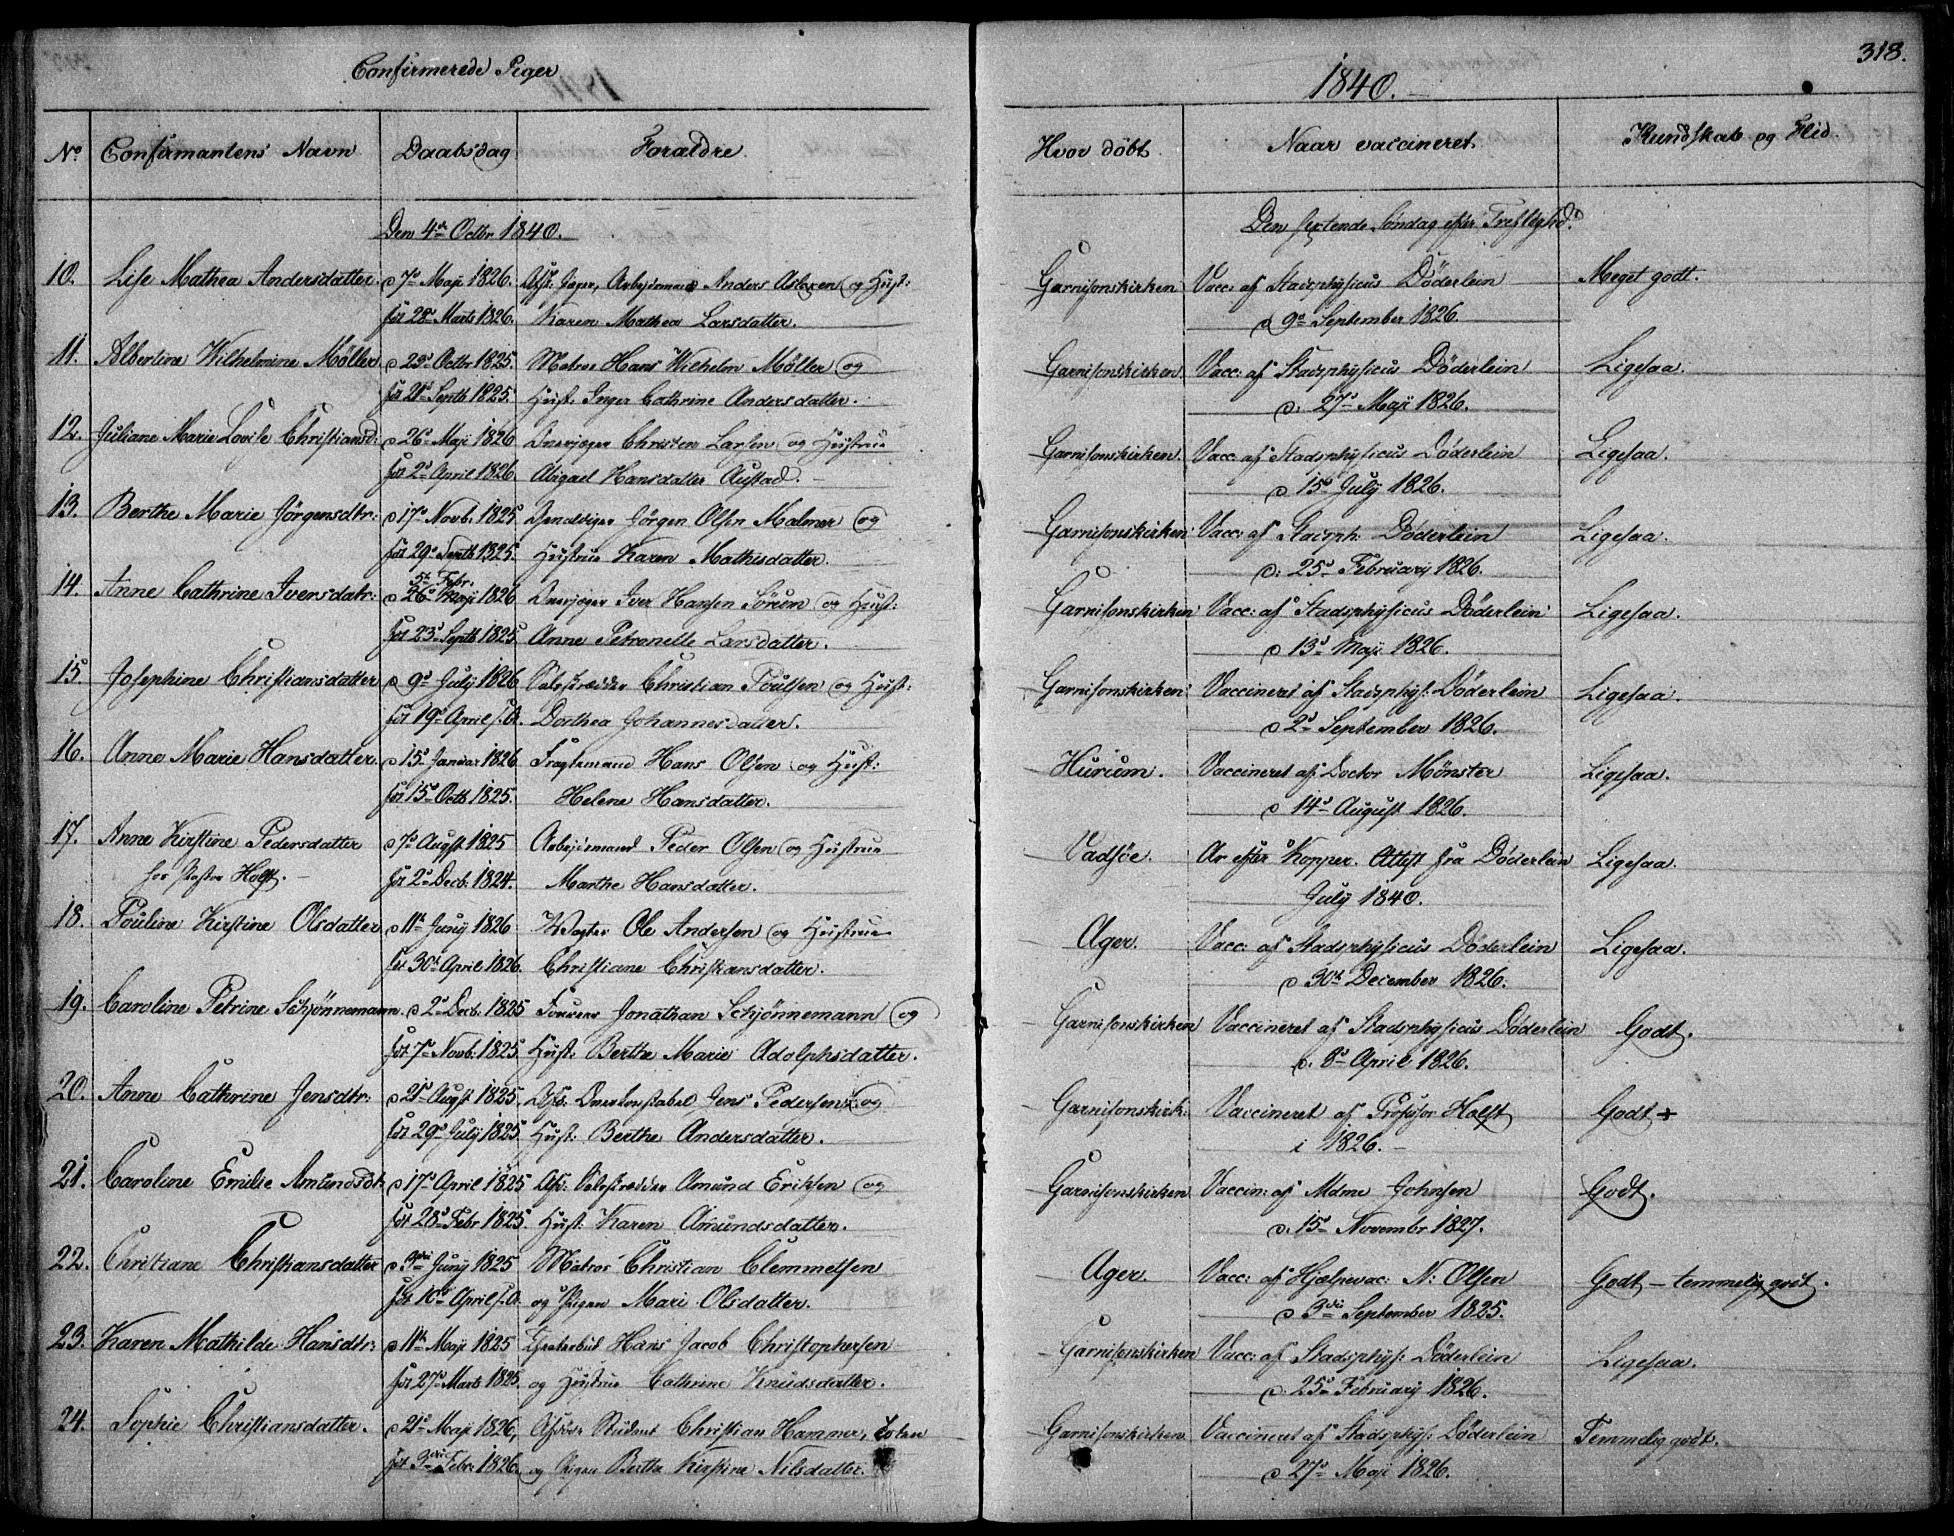 Confirmerede Piger
1840.
318.
No Confirmantens Navn Daabsdag Forældre Hvor døbt. Naar vaccineret. Kundskab og Flid.
Den 4de Octbr 1840. Den sextende Søndag efter Trefoldighed.
10. Lise Mathea Andersdatter. d 7de Maji 1826. Afsk: Jæger, Arbejdsmand Anders Aslaxen og Hust: Garnisonskirken Vacc: af Stadsphysicus Döderlein Meget godt.
fød 28de Marts 1826. Karen Mathea Larsdatter. d 9de September 1826.
11. Albertine Wilhelmine Møller. d 23de Octbr 1825. Matros Hans Wilhelm Møller og Garnisonskirken Vacc: af Stadsphysicus Döderlein Ligesaa.
fød 21de Septb 1825. Hust: Inger Cathrine Andersdatter. d. 27de Maji 1826.
12. Juliane Marie Lovise Christiansd: d 26de Maji 1826 Christen Larsen og Hustrue Garnisonskirken. Vacc. af Stadsphysicus Döderlein Ligesaa.
fød 2de April 1826. Abigael Hansdatter Austad. d. 15de July 1826.
13. Berthe Marie Jörgensdtr: d 17de Novb. 1825 Jörgen Olsen Malmer og Garnisonskirken Vacc: af Stadsph: Döderlein Ligesaa.
fød 29de Septb 1825. Hustrue Karen Mathisdatter. d: 25de February 1826.
5te Febr.
14. Anne Cathrine Iversdatr: d 26de Maji 1826 Iver Hansen Sörum og Hust: Garnisonskirken Vacc: af Stadsphysicus Döderlein Ligesaa.
fød 23de Septb 1825. Anne Petronelle Larsdatter. d 13de Maji 1826.
15. Josephine Christiansdatter d 9de July 1826 Christian Poulsen og Hust: Garnisonskirken Vaccineret af Stadsphys: Döderlein Ligesaa.
fød 19de April s. A. Dorthea Johannesdatter. d 2de September 1826.
16. Anne Marie Hansdatter. d 15de Januar 1826 Fragtemand Hans Olsen og Hust: Hurum. Vaccineret af Doctor Mönster Ligesaa.
fød 15de Octb 1825. Helene Hansdatter. d 14de August 1826.
17. Anne Kirstine Pedersdatter d 7de Augst 1825 Arbejdsmand Peder Olsen og Hustrue Vadsöe. Ar efter Kopper. Attest fra Döderlein Ligesaa.
hos Holst. fød 2de Decb. 1824. Marthe Hansdatter. July 1840.
18. Pouline Kirstine Olsdatter d 11te Juny 1826 Vægter Ole Andersen og Hustrue Ager. Vacc: af Stadsphysicus Döderlein Ligesaa.
fød 30te April 1826. Christiane Christiansdatter. d 30te December 1826.
19. Caroline Petrine Schjönnemann. d 2de Decb: 1825 Fourer Jonathan Schjönnemann og Garnisonskirken Vaccineret af Stadsphysicus Döderlein Godt.
fød 7de Novb: 1825. Hust: Berthe Marie Adolphsdatter. d. 8de April 1826.
20. Anne Cathrine Jensdtr: d 21de Augst 1825. Afsk: Jens Pedersen og Garnisonskirk: Vaccineret af Professor Holst Godt +
fød 29de July 1825. Hust: Berthe Andersdatter. i 1826.
21. Caroline Emilie Amundsdt: d 17de April 1825 Afsk: Amund Eriksen og Garnisonskirken Vaccin: af Mdme Johnsen Godt.
fød 28de Febr 1825 Hust: Karen Amundsdatter. d. 15de Novembr 1827.
22. Christiane Christiansdatter d 3die Juny 1825 Matros Christian Clemmetsen Ager. Vacc: af Hjælpevac: N: Olsen Godt – temmelig godt.
fød 10de April s. A. og Pigen Mari Olsdatter. d 3die September 1825.
23. Karen Mathilde Hansdtr: d 11te Maji 1825 Hans Jacob Christophersen Garnisonskirken Vacc: af Stadsphys: Döderlein Ligesaa.
fød 27de Marts 1825. og Hustrue Cathrine Knudsdatter. d. 25de February 1826.
24. Sophie Christiansdatter. d 21de Maji 1826, Afdöde Student Christian Hammer, Toten Garnisonskirken Vaccineret af Stadsphys: Döderlein Temmelig godt.
fød 3die Febr: 1826. og Pigen Berthe Kirstine Nilsdatter. d 27de Maji 1826.